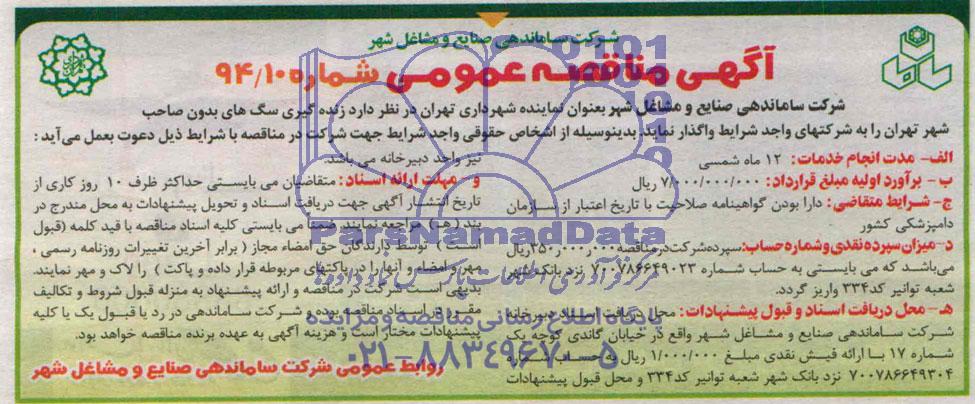 شرکت ساماندهی صنایع و مشاغل شهر
آگهی مناقصه عمومی شماره ۹۴/۱۰
شرکت ساماندهی صنایع و مشاغل شهر بعنوان نماینده شهرداری تهران در نظر دارد زنده گیری سگ های بدون صاحب
شهر تهران را به شرکتهای واجد شرایط واگذار نماید. بدینوسیله از اشخاص حقوقی واجد شرایط جهت شرکت در مناقصه با شرایط ذیل دعوت بعمل می آید:
الف- مدت انجام خدمات: ۱۲ ماه شمسی
ب- برآورد اولیه مبلغ قرارداد: ۷/۰۰۰/۰۰۰/۰۰۰ ریال
ج- شرایط متقاضی: دارا بودن گواهینامه صلاحیت با تاریخ اعتبار از سازمان
دامپزشکی کشور
د- میزان سپرده نقدی و شماره حساب: سپرده شرکت در مناقصه ۳۵۰/۰۰۰/۰۰۰ ریال
می‌باشد که می بایستی به حساب شماره ۷۰۰۷۸۶۶۴۹۰۲۳ نزد بانک شهر
شعبه توانیر کد ۳۳۴ واریز گردد.
هـ- محل دریافت اسناد و قبول پیشنهادات: محل دریافت اسناد دبیرخانه
شرکت ساماندهی صنایع و مشاغل شهر واقع در خیابان گاندی کوچه یک
شماره ۱۷ با ارائه فیش نقدی مبلغ ۱/۰۰۰/۰۰۰ ریال به حساب شماره
۷۰۰۷۸۶۶۴۹۳۰۴ نزد بانک شهر شعبه توانیر کد ۳۳۴ و محل قبول پیشنهادات
نیز واحد دبیرخانه می باشد.
و- مهلت ارائه اسناد: متقاضیان می بایستی حداکثر ظرف ۱۰ روز کاری از
تاریخ انتشار آگهی جهت دریافت اسناد و تحویل پیشنهادات به محل مندرج در
بند (هـ) مراجعه نمایند. ضمنا می بایستی کلیه اسناد مناقصه با قید کلمه (قبول
است) توسط دارندگان حق امضاء مجاز (برابر آخرین تغییرات روزنامه رسمی،
مهر و امضاء و آنها را در پاکتهای مربوطه قرار داده و پاکت) را لاک و مهر نمایند.
بدیهی است شرکت در مناقصه و ارائه پیشنهاد به منزله قبول شروط و تکالیف
مقرر در اسناد مناقصه بوده و شرکت ساماندهی در رد یا قبول یک یا کلیه
پیشنهادات مختار است و هزینه آگهی به عهده برنده مناقصه خواهد بود.
روابط عمومی شرکت ساماندهی صنایع و مشاغل شهر
ParsNamadData
مرکز فرآوری اطلاعات پارس نماد داده ها
پایگاه اطلاع رسانی مناقصه و مزایده
۰۲۱-۸۸۳۴۹۶۷۰